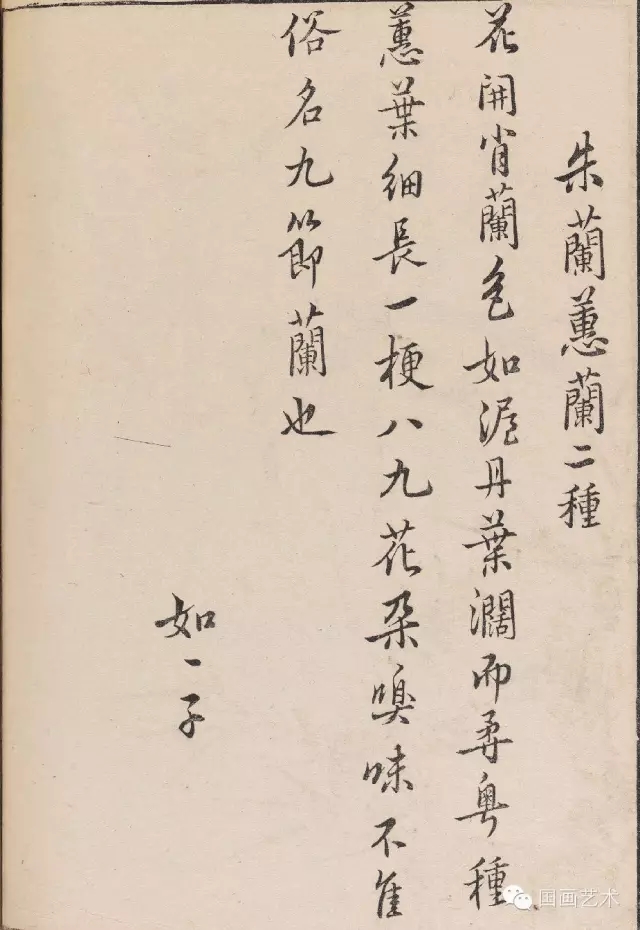 朱蘭蕙蘭二種
花開肖蘭色如渥丹葉濶而柔粤種
蕙葉細長一梗八九花朶嗅味不佳
俗名九節蘭也
如一子
国画艺术